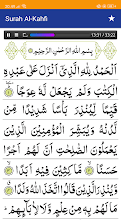 Surah Al-Kahfi
13:01 / 33:22
بِسْمِ اللّٰهِ الرَّحْمٰنِ الرَّحِيْمِ
اَلْحَمْدُ لِلّٰهِ الَّذِيْٓ اَنْزَلَ عَلٰى عَبْدِهِ
الْكِتٰبَ وَلَمْ يَجْعَلْ لَّهٗ عِوَجًا
قَيِّمًا لِّيُنْذِرَ بَأْسًا شَدِيْدًا مِّنْ
لَّدُنْهُ وَيُبَشِّرَ الْمُؤْمِنِيْنَ الَّذِيْنَ
يَعْمَلُوْنَ الصّٰلِحٰتِ اَنَّ لَهُمْ اَجْرًا
حَسَنًا مَّاكِثِيْنَ فِيْهِ اَبَدًا وَّيُنْذِرَ
الَّذِيْنَ قَالُوا اتَّخَذَ اللّٰهُ وَلَدًا
مَا لَهُمْ بِهٖ مِنْ عِلْمٍ وَّلَا لِاٰبَآئِهِمْ